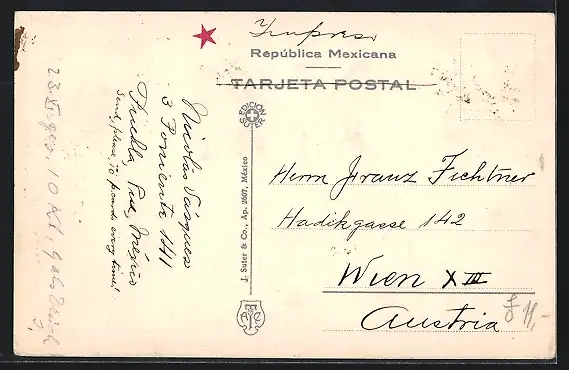 Impreso
República Mexicana
TARJETA POSTAL
EDICION SUTER
J. Suter & Co., Ap. 2607, México
Nicolás Vásquez
3 Poniente 1141
Puebla, Pue, México
Send, please, 10 cards every time!
Herrn Franz Fichtner
Hadikgasse 142
Wien XIII
Austria
11,-